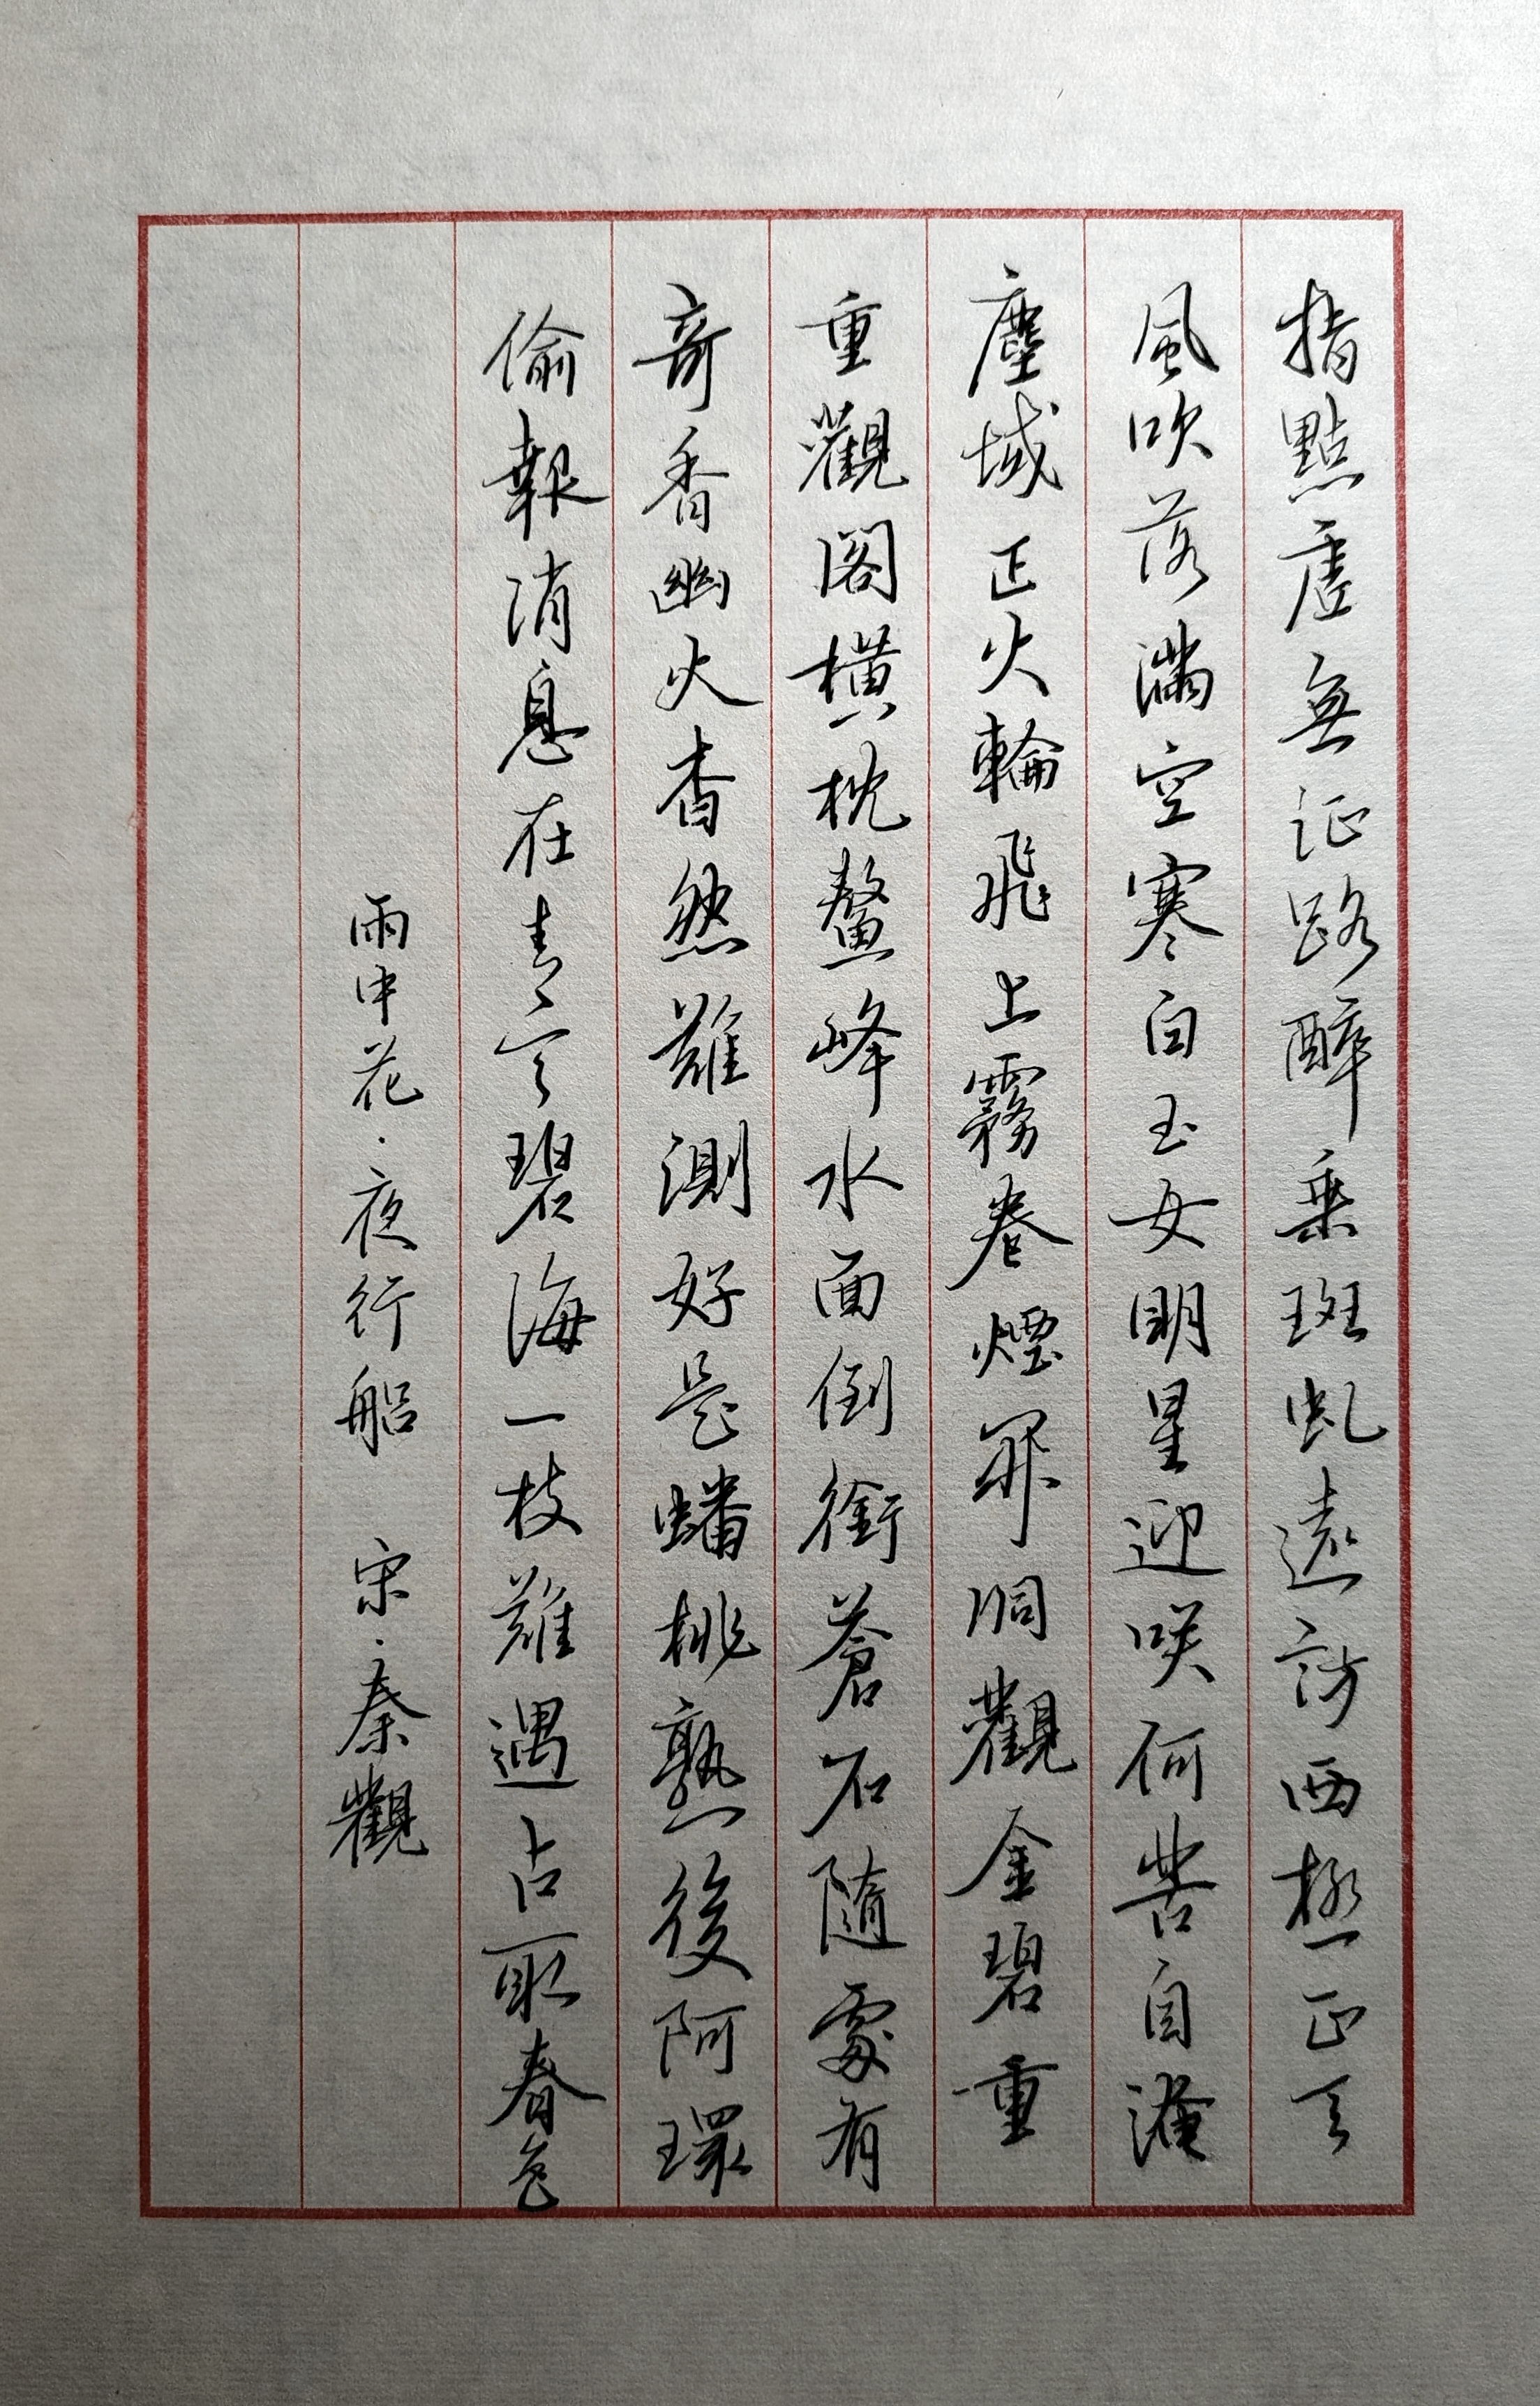 指點虛無征路醉乘斑虬遠訪西極正天
風吹落滿空寒白玉女明星迎咲何苦自淹
塵域正火輪飛上霧卷煙開洞觀金碧重
重觀閣橫枕鰲峰水面倒銜蒼石隨處有
奇香幽火杳然難測好是蟠桃熟後阿環
偷報消息在青天碧海一枝難遇占取春色
雨中花·夜行船 宋·秦觀